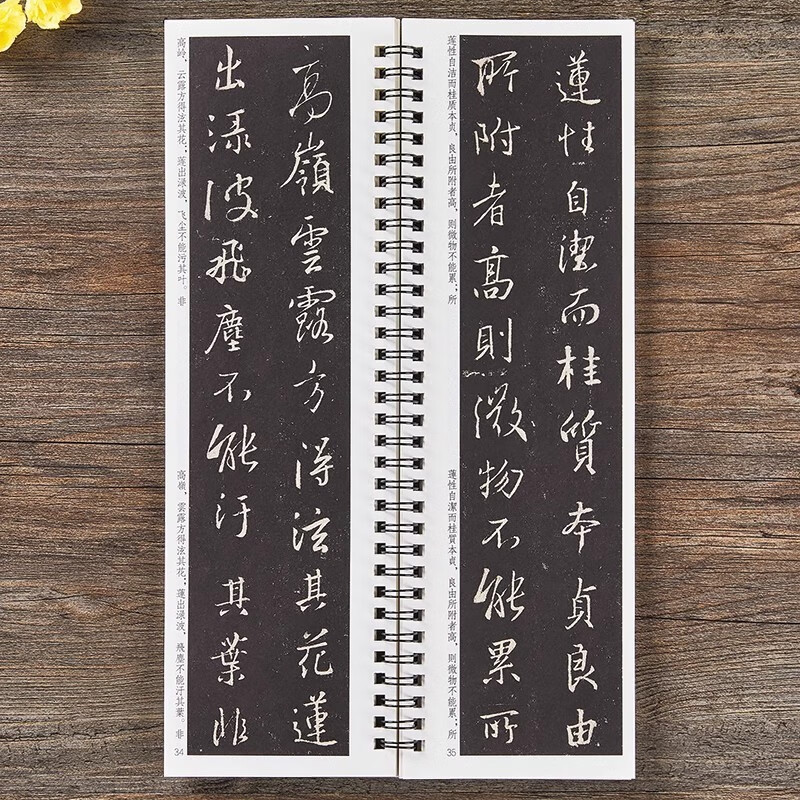 高嶺雲露方得泫其花蓮
出淥波飛塵不能汙其葉非
高岭，云露方得泫其花；莲出渌波，飞尘不能污其叶。非
高嶺，雲露方得泫其花；蓮出淥波，飛塵不能汙其葉。非
34
蓮性自潔而桂質本貞良由
所附者高則微物不能累所
莲性自洁而桂质本贞，良由所附者高，则微物不能累；所
蓮性自潔而桂質本貞，良由所附者高，則微物不能累；所
35